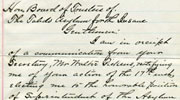 Hon. Board of Trustees of
The Dodd's Asylum for the Insane
Gentlemen
I am in receipt
of a communication from your
Secretary, Mr. Walter Dickens, notifying
me of your action of the 17th inst,
electing me to the honorable position
of Superintendent of the Asylum